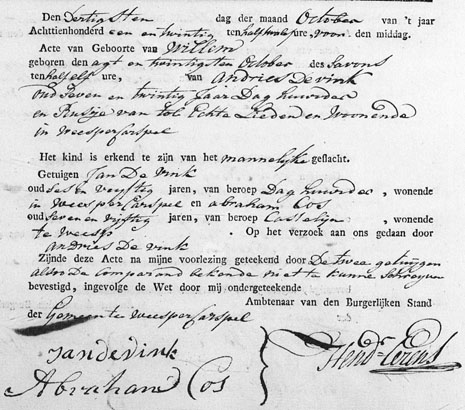 Den dertigsten dag der maand October van 't jaar
Achttienhonderd een en twintig ten half twalf ure, voor den middag.
Acte van Geboorte van Willem
geboren den agt en twintigsten October des Savons
ten half elf ure, van Andries De vink
oud Seven en twintig Jaar Dag huurder
en Rusje van tol Echte Lieden en Woonende
in weesper Carspel
Het kind is erkend te zijn van het mannelijke geslacht.
Getuigen Jan De vink
oud Ses en vijftig jaren, van beroep Dag huurder, wonende
in weesper Carspel en abraham Cos
oud Seven en vijftig jaren, van beroep Castelijn, wonende
te weesp. Op het verzoek aan ons gedaan door
andries De vink
Zijnde deze Acta na mijne voorlezing geteekend door De twee getuijgen
alsoo De Comparand bekende niet te kunne Schreijven
bevestigd, ingevolge de Wet door mij ondergeteekende
Ambtenaar van den Burgerlijken Stand
der Gemeente weesper Carspel
Jan de vink
Abraham Cos
Hendr